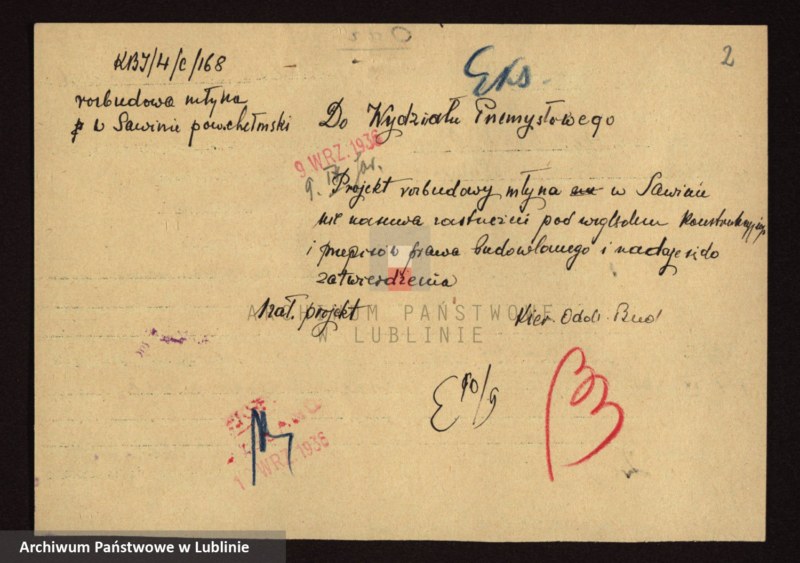 2
KBI/4/c/168
Eks.
rozbudowa młyna
w Sawinie pow. chełmski
Do Wydziału Przemysłowego
9 WRZ. 1936
Projekt rozbudowy młyna w Sawinie
nie nasuwa zastrzeżeń pod względem konstrukcyjnym
i przepisów prawa budowlanego i nadaje się do
zatwierdzenia
1 zał. projekt
Kier. Oddz. Bud
ARCHIWUM PAŃSTWOWE
W LUBLINIE
E 10/9
WRZ. 1936
Archiwum Państwowe w Lublinie